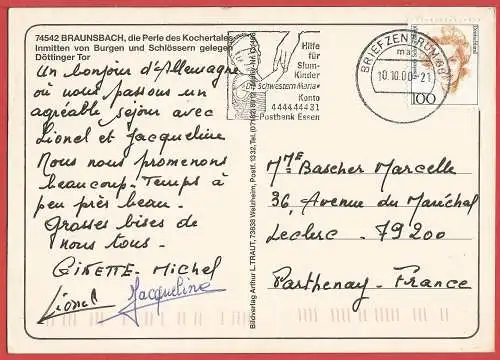 74542 BRAUNSBACH, die Perle des Kochertales
Inmitten von Burgen und Schlössern gelegen
Döttinger Tor
Un bonjour d'Allemagne
où nous passons un
agréable séjour avec
Lionel et Jacqueline
Nous nous promenons
beaucoup - Temps à
peu près beau.
Grosses bises de
nous tous.
GINETTE - Michel
Lionel Jacqueline
Bildverlag Arthur L. TRAUT, 73638 Welzheim, Postf. 1332, Tel. (07182)
Hilfe
für
Slum-
Kinder
"Die Schwestern Maria"
Konto
444444431
Postbank Essen
BRIEFZENTRUM 68
ma
10.10.00-21
100
Mme Bascher Marcelle
36, Avenue du Maréchal
Leclerc - 79200
Parthenay - France